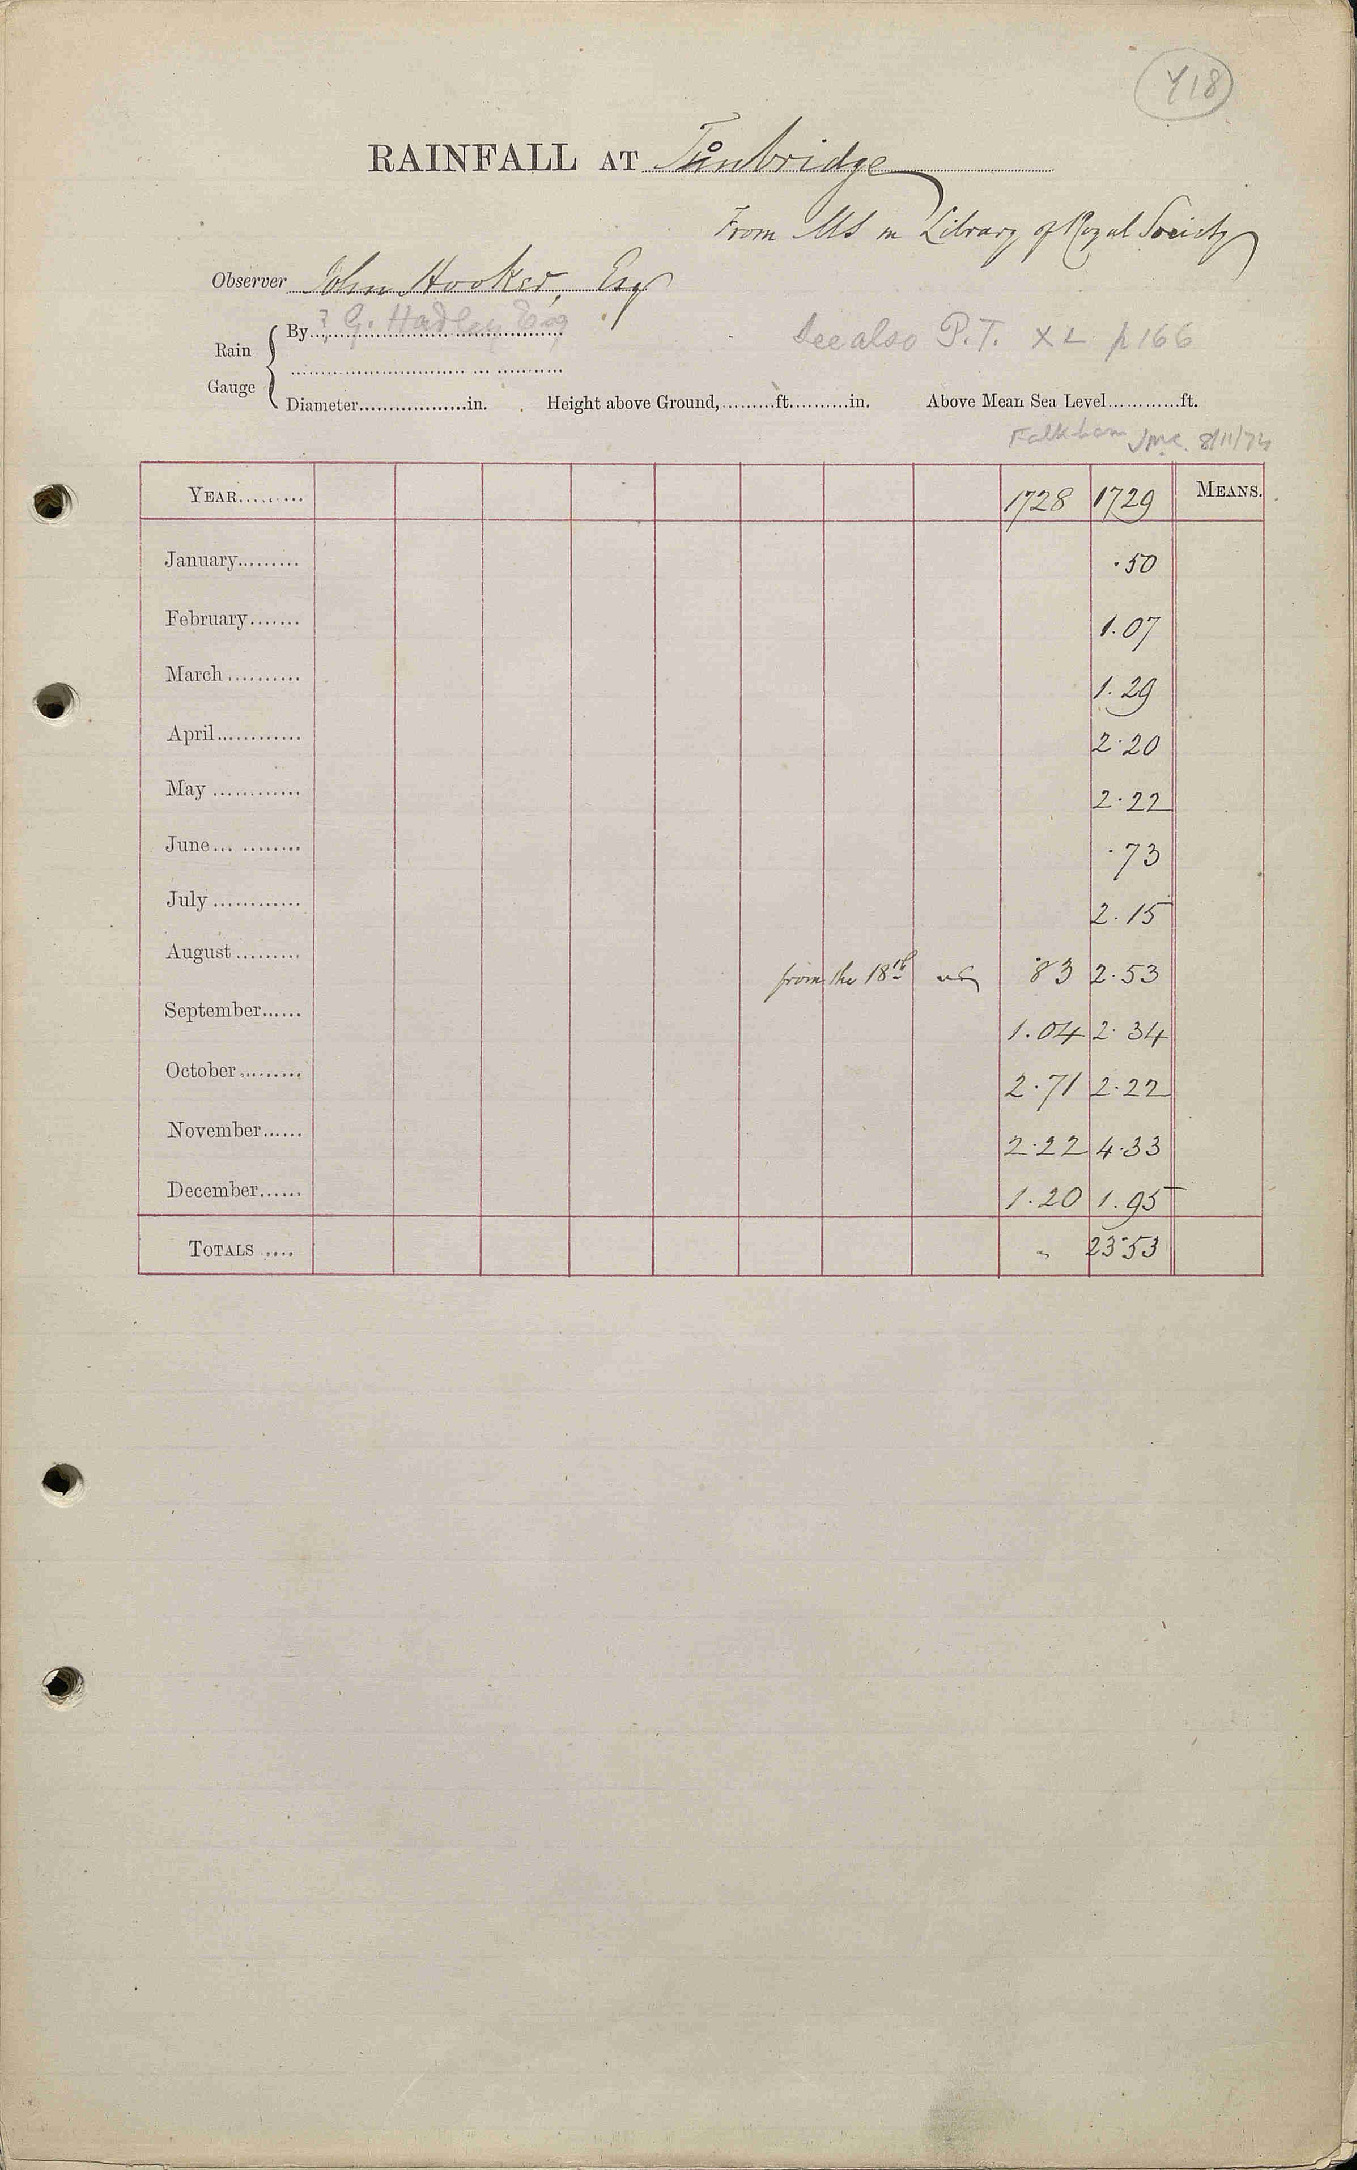 418
RAINFALL AT Tonbridge
From MS in Library of Royal Society
Observer John Hooker, Esq
Rain Gauge { By ? G. Hadley Esq
See also P.T. XL p166
Diameter..................in. Height above Ground,.........ft..........in. Above Mean Sea Level............ft.
8/11/74
YEAR......... 1728 1729 MEANS.
January......... .50
February....... 1.07
March.......... 1.29
April............ 2.20
May ............ 2.22
June... ........ .73
July............ 2.15
August......... from the 18th only .83 2.53
September...... 1.04 2.34
October......... 2.71 2.22
November...... 2.22 4.33
December...... 1.20 1.95
TOTALS .... „ 23.53